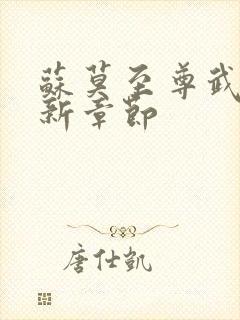 蘇莫至尊武
新章節
唐仕凱